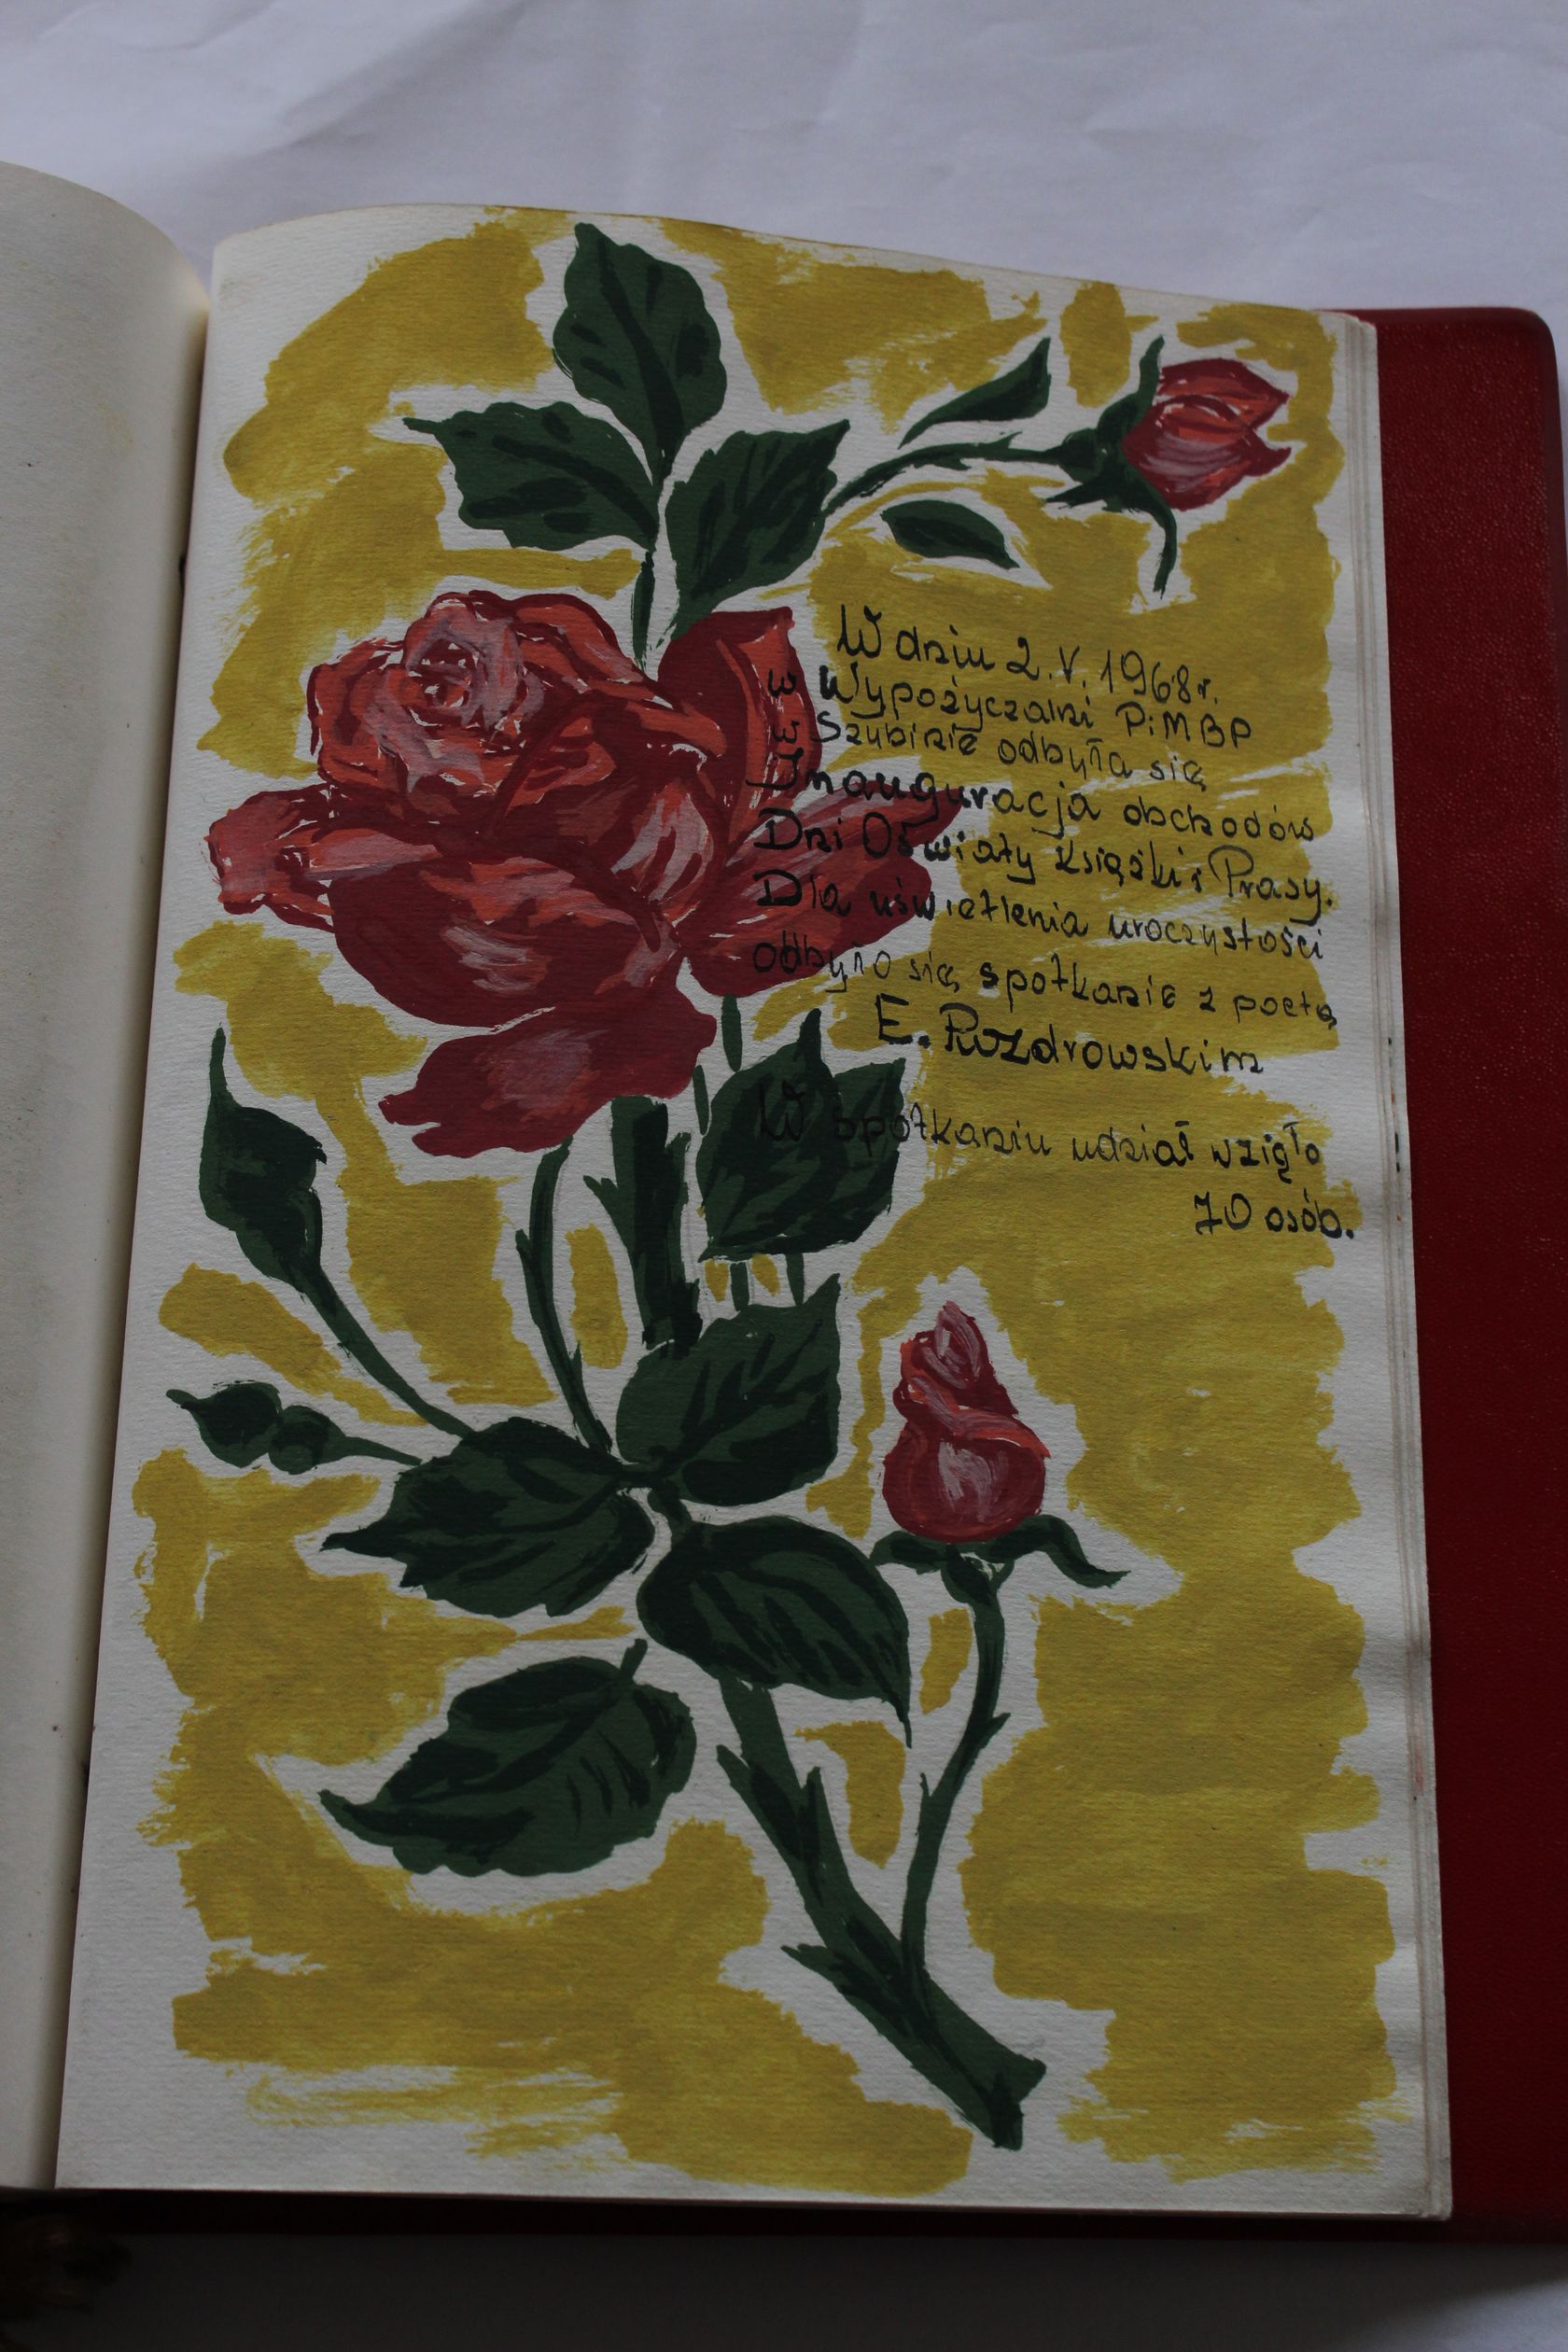 W dniu 2.V.1968r.
w Wypożyczalni PiMBP
w Szubinie odbyła się
Inauguracja obchodów
Dni Oświaty Książki i Prasy.
Dla uświetlenia uroczystości
odbyło się spotkanie z poetą
E. Rozdrowskim
W spotkaniu udział wzięło
70 osób.